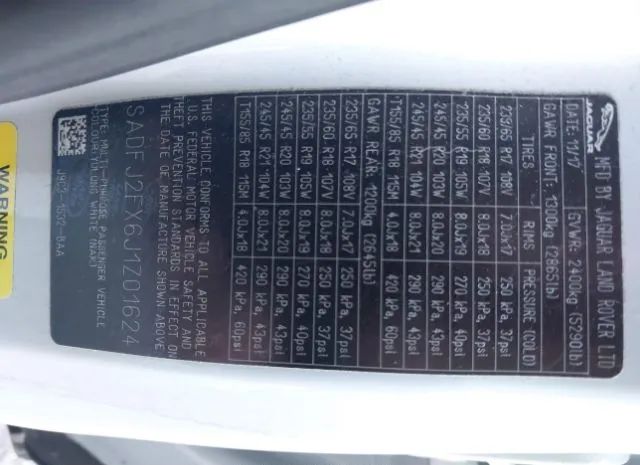 JAGUAR
MFD BY JAGUAR LAND ROVER LTD
DATE: 11/17 GVWR: 2400kg (5290lb)
GAWR FRONT: 1300kg (2865lb)
TIRES RIMS PRESSURE (COLD)
235/65 R17 108V 7.0Jx17 250 kPa, 37psi
235/60 R18 107V 8.0Jx18 250 kPa, 37psi
235/55 R19 105W 8.0Jx19 270 kPa, 40psi
245/45 R20 103W 8.0Jx20 290 kPa, 43psi
245/45 R21 104W 8.0Jx21 290 kPa, 43psi
T155/85 R18 115M 4.0Jx18 420 kPa, 60psi
GAWR REAR: 1200kg (2645lb)
235/65 R17 108V 7.0Jx17 250 kPa, 37psi
235/60 R18 107V 8.0Jx18 250 kPa, 37psi
235/55 R19 105W 8.0Jx19 270 kPa, 40psi
245/45 R20 103W 8.0Jx20 290 kPa, 43psi
245/45 R21 104W 8.0Jx21 290 kPa, 43psi
T155/85 R18 115M 4.0Jx18 420 kPa, 60psi
THIS VEHICLE CONFORMS TO ALL APPLICABLE
U.S. FEDERAL MOTOR VEHICLE SAFETY AND
THEFT PREVENTION STANDARDS IN EFFECT ON
THE DATE OF MANUFACTURE SHOWN ABOVE
SADFJ2FX6J1Z01624
TYPE: MULTI-PURPOSE PASSENGER VEHICLE
COLOUR: YULONG WHITE (NAK)
WARNING